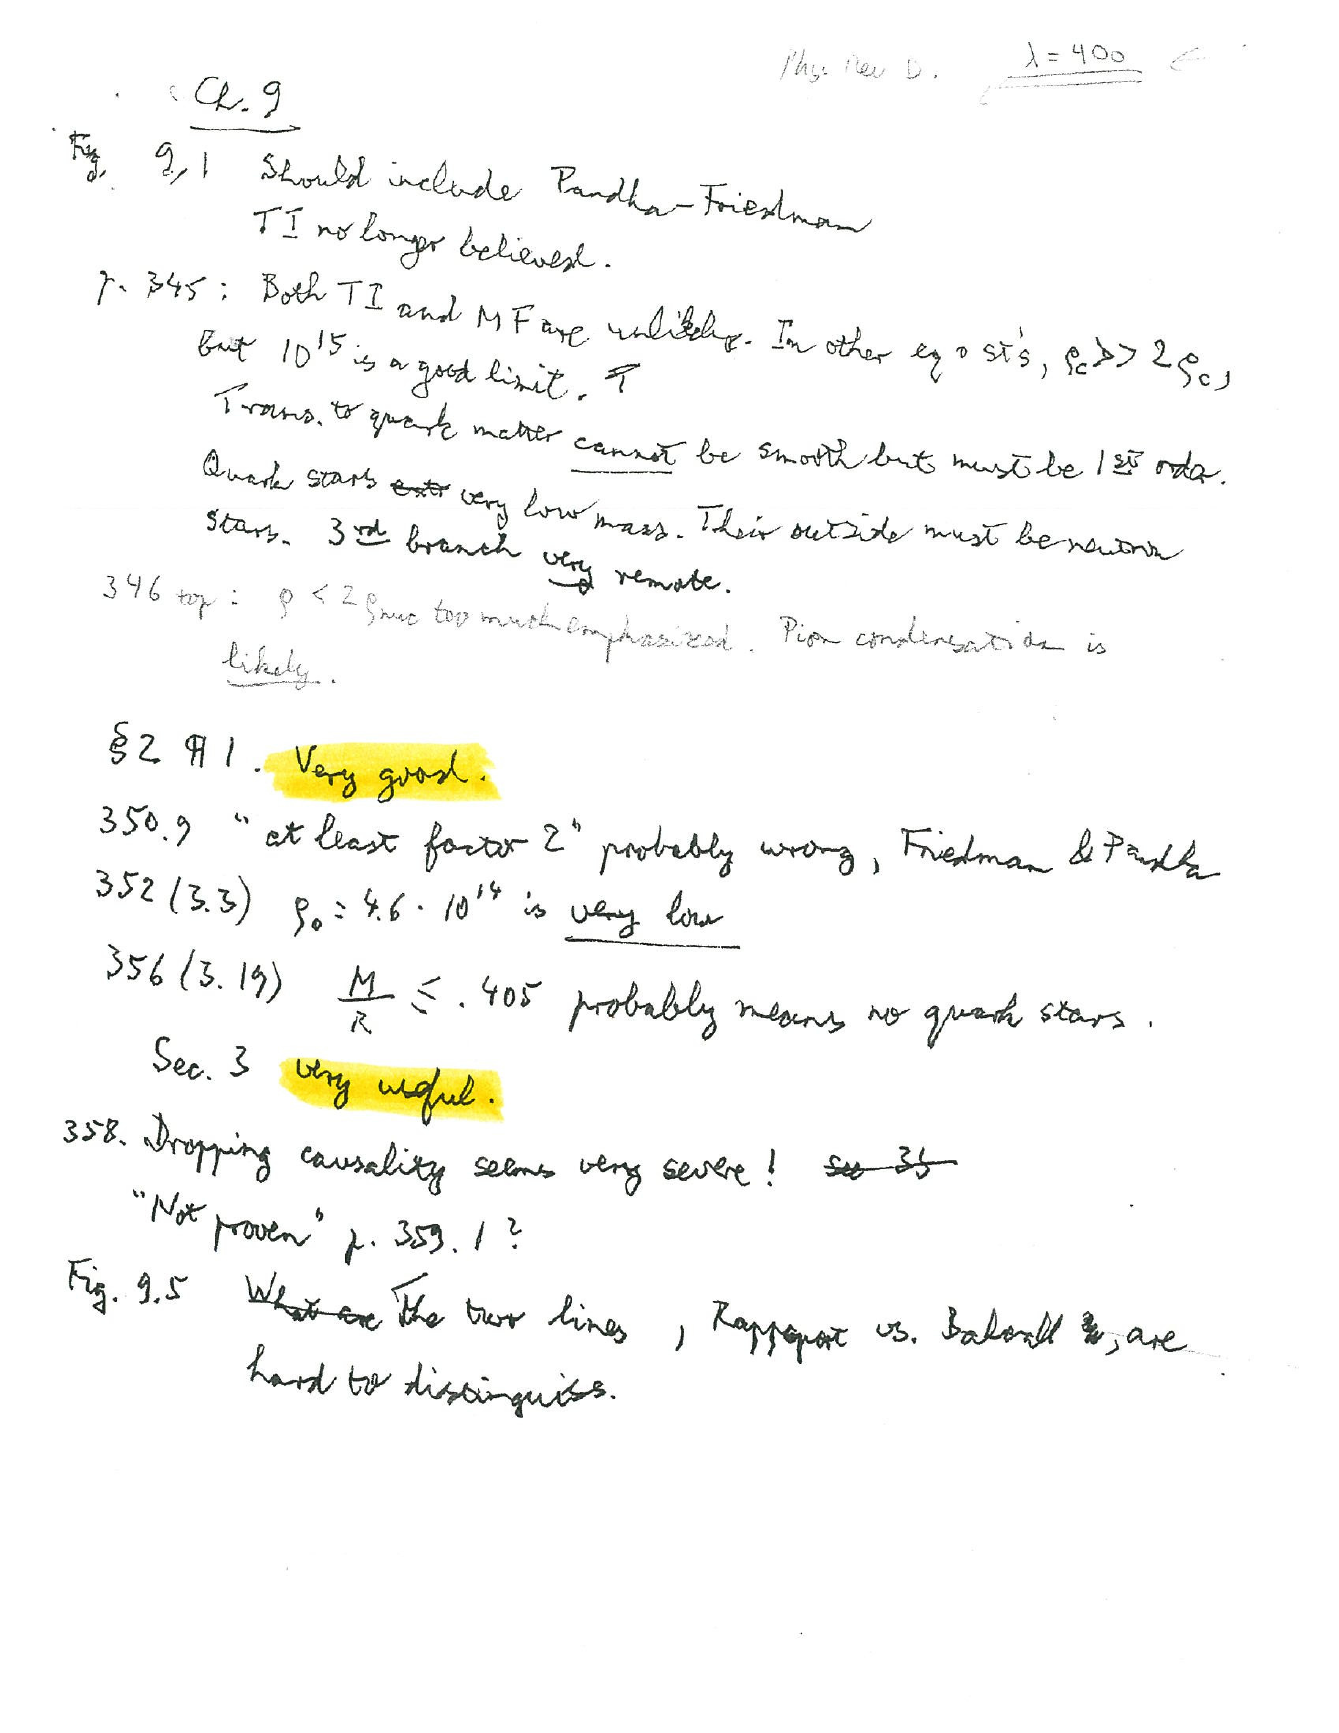 Phys Rev D. λ = 400
Ch. 9
Fig. 9.1 Should include Pandha-Friedman
TI no longer believed.
p. 345: Both TI and MF are unlikely. In other eq o st's, ρc >> 2ρc,
but 10^15 is a good limit.
Trans. to quark matter cannot be smooth but must be 1st order.
Quark stars very low mass. Their outside must be neutron
stars. 3rd branch very remote.
346 top: ρ < 2ρnuc too much emphasized. Pion condensation is
likely.
§2 ¶1. Very good.
350.9 "at least factor 2" probably wrong, Friedman & Pandha
352 (3.3) ρ0 = 4.6 · 10^14 is very low
356 (3.19) M/R ≤ .405 probably means no quark stars.
Sec. 3 very useful.
358. Dropping causality seems very severe!
"Not proven" p. 359.1?
Fig. 9.5 What are The two lines, Rappaport vs. Bahcall, are
hard to distinguish.